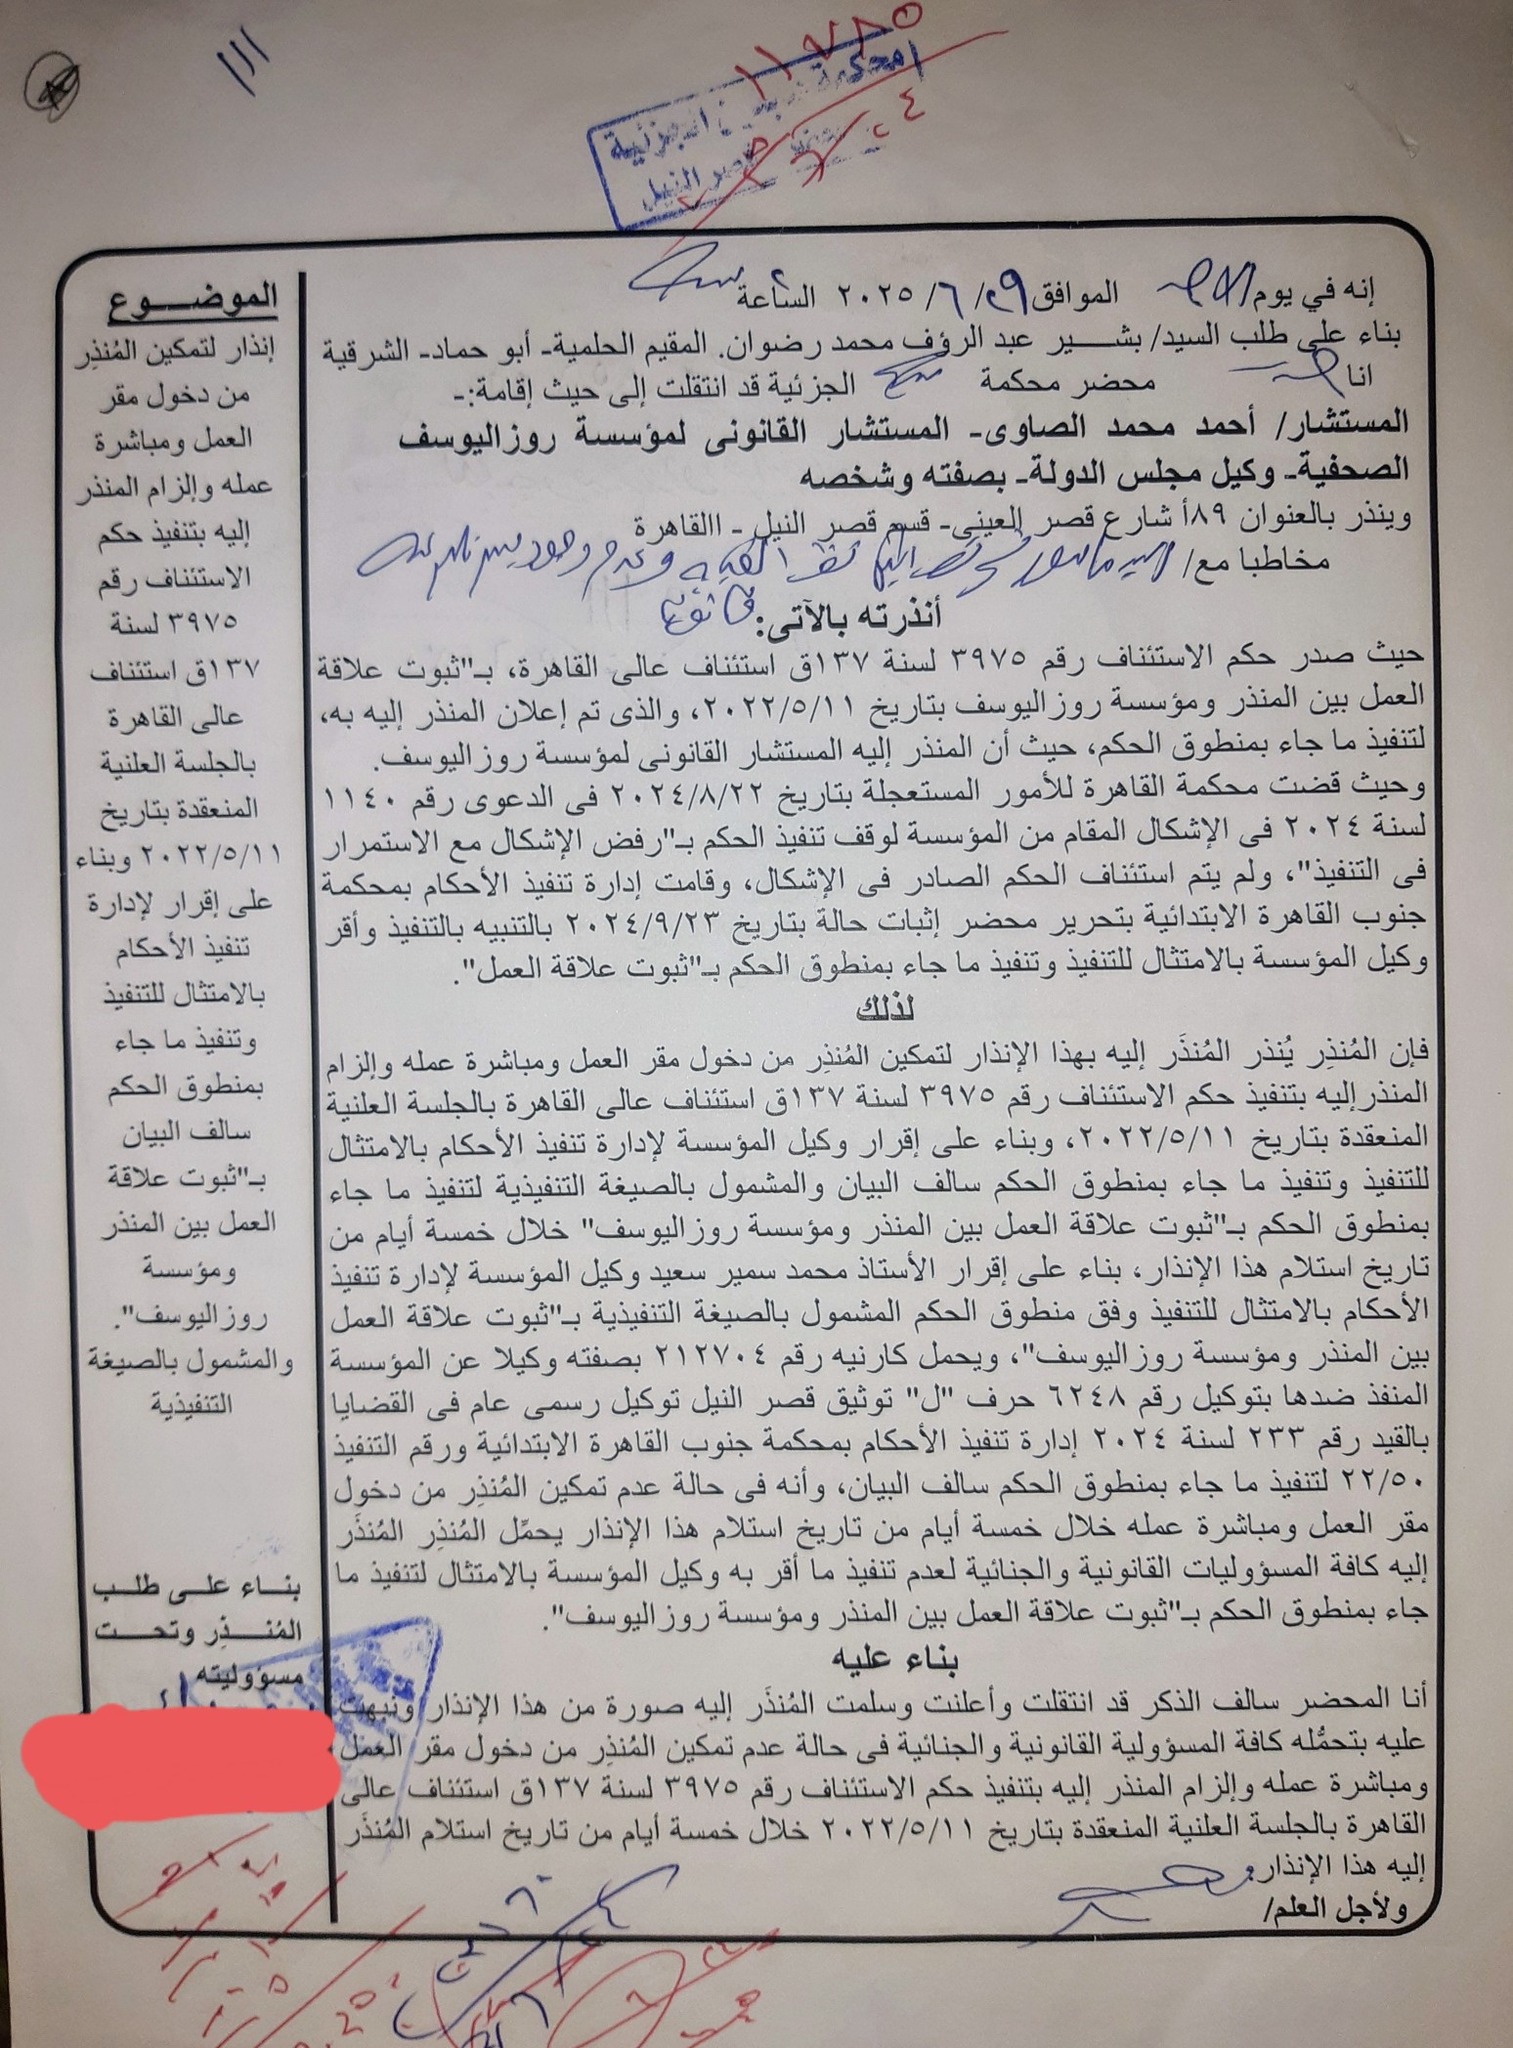 ١١٧٨٥
الجزئية
قصر النيل
إنه في يوم الأحد الموافق ٢٩/ ٦/ ٢٠٢٥ الساعة
بناء على طلب السيد/ بشير عبد الرؤف محمد رضوان. المقيم الحلمية- أبو حماد- الشرقية
انا محضر محكمة الجزئية قد انتقلت إلى حيث إقامة:-
المستشار/ أحمد محمد الصاوى- المستشار القانونى لمؤسسة روزاليوسف
الصحفية- وكيل مجلس الدولة- بصفته وشخصه
وينذر بالعنوان ٨٩أ شارع قصر العينى- قسم قصر النيل - االقاهرة
مخاطبا مع/
أنذرته بالآتى:
حيث صدر حكم الاستئناف رقم ٣٩٧٥ لسنة ١٣٧ق استئناف عالى القاهرة، بـ"ثبوت علاقة
العمل بين المنذر ومؤسسة روزاليوسف بتاريخ ٢٠٢٢/٥/١١، والذى تم إعلان المنذر إليه به،
لتنفيذ ما جاء بمنطوق الحكم، حيث أن المنذر إليه المستشار القانونى لمؤسسة روزاليوسف.
وحيث قضت محكمة القاهرة للأمور المستعجلة بتاريخ ٢٠٢٤/٨/٢٢ فى الدعوى رقم ١١٤٠
لسنة ٢٠٢٤ فى الإشكال المقام من المؤسسة لوقف تنفيذ الحكم بـ"رفض الإشكال مع الاستمرار
فى التنفيذ"، ولم يتم استئناف الحكم الصادر فى الإشكال، وقامت إدارة تنفيذ الأحكام بمحكمة
جنوب القاهرة الابتدائية بتحرير محضر إثبات حالة بتاريخ ٢٠٢٤/٩/٢٣ بالتنبيه بالتنفيذ وأقر
وكيل المؤسسة بالامتثال للتنفيذ وتنفيذ ما جاء بمنطوق الحكم بـ"ثبوت علاقة العمل".
لذلك
فإن المُنذِر يُنذر المُنذَر إليه بهذا الإنذار لتمكين المُنذِر من دخول مقر العمل ومباشرة عمله وإلزام
المنذرإليه بتنفيذ حكم الاستئناف رقم ٣٩٧٥ لسنة ١٣٧ق استئناف عالى القاهرة بالجلسة العلنية
المنعقدة بتاريخ ٢٠٢٢/٥/١١، وبناء على إقرار وكيل المؤسسة لإدارة تنفيذ الأحكام بالامتثال
للتنفيذ وتنفيذ ما جاء بمنطوق الحكم سالف البيان والمشمول بالصيغة التنفيذية لتنفيذ ما جاء
بمنطوق الحكم بـ"ثبوت علاقة العمل بين المنذر ومؤسسة روزاليوسف" خلال خمسة أيام من
تاريخ استلام هذا الإنذار، بناء على إقرار الأستاذ محمد سمير سعيد وكيل المؤسسة لإدارة تنفيذ
الأحكام بالامتثال للتنفيذ وفق منطوق الحكم المشمول بالصيغة التنفيذية بـ"ثبوت علاقة العمل
بين المنذر ومؤسسة روزاليوسف"، ويحمل كارنيه رقم ٢١٢٧٠٤ بصفته وكيلا عن المؤسسة
المنفذ ضدها بتوكيل رقم ٦٢٤٨ حرف "ل" توثيق قصر النيل توكيل رسمى عام فى القضايا
بالقيد رقم ٢٣٣ لسنة ٢٠٢٤ إدارة تنفيذ الأحكام بمحكمة جنوب القاهرة الابتدائية ورقم التنفيذ
٢٢/٥٠ لتنفيذ ما جاء بمنطوق الحكم سالف البيان، وأنه فى حالة عدم تمكين المُنذِر من دخول
مقر العمل ومباشرة عمله خلال خمسة أيام من تاريخ استلام هذا الإنذار يحمِّل المُنذِر المُنذَر
إليه كافة المسؤوليات القانونية والجنائية لعدم تنفيذ ما أقر به وكيل المؤسسة بالامتثال لتنفيذ ما
جاء بمنطوق الحكم بـ"ثبوت علاقة العمل بين المنذر ومؤسسة روزاليوسف".
بناء عليه
أنا المحضر سالف الذكر قد انتقلت وأعلنت وسلمت المُنذَر إليه صورة من هذا الإنذار ونبهت
عليه بتحمُّله كافة المسؤولية القانونية والجنائية فى حالة عدم تمكين المُنذِر من دخول مقر العمل
ومباشرة عمله وإلزام المنذر إليه بتنفيذ حكم الاستئناف رقم ٣٩٧٥ لسنة ١٣٧ق استئناف عالى
القاهرة بالجلسة العلنية المنعقدة بتاريخ ٢٠٢٢/٥/١١ خلال خمسة أيام من تاريخ استلام المُنذَر
إليه هذا الإنذار.
ولأجل العلم/
الموضـــوع
إنذار لتمكين المُنذِر
من دخول مقر
العمل ومباشرة
عمله وإلزام المنذر
إليه بتنفيذ حكم
الاستئناف رقم
٣٩٧٥ لسنة
١٣٧ق استئناف
عالى القاهرة
بالجلسة العلنية
المنعقدة بتاريخ
٢٠٢٢/٥/١١ وبناء
على إقرار لإدارة
تنفيذ الأحكام
بالامتثال للتنفيذ
وتنفيذ ما جاء
بمنطوق الحكم
سالف البيان
بـ"ثبوت علاقة
العمل بين المنذر
ومؤسسة
روزاليوسف".
والمشمول بالصيغة
التنفيذية
بناء على طلب
المُنذِر وتحت
مسؤوليته